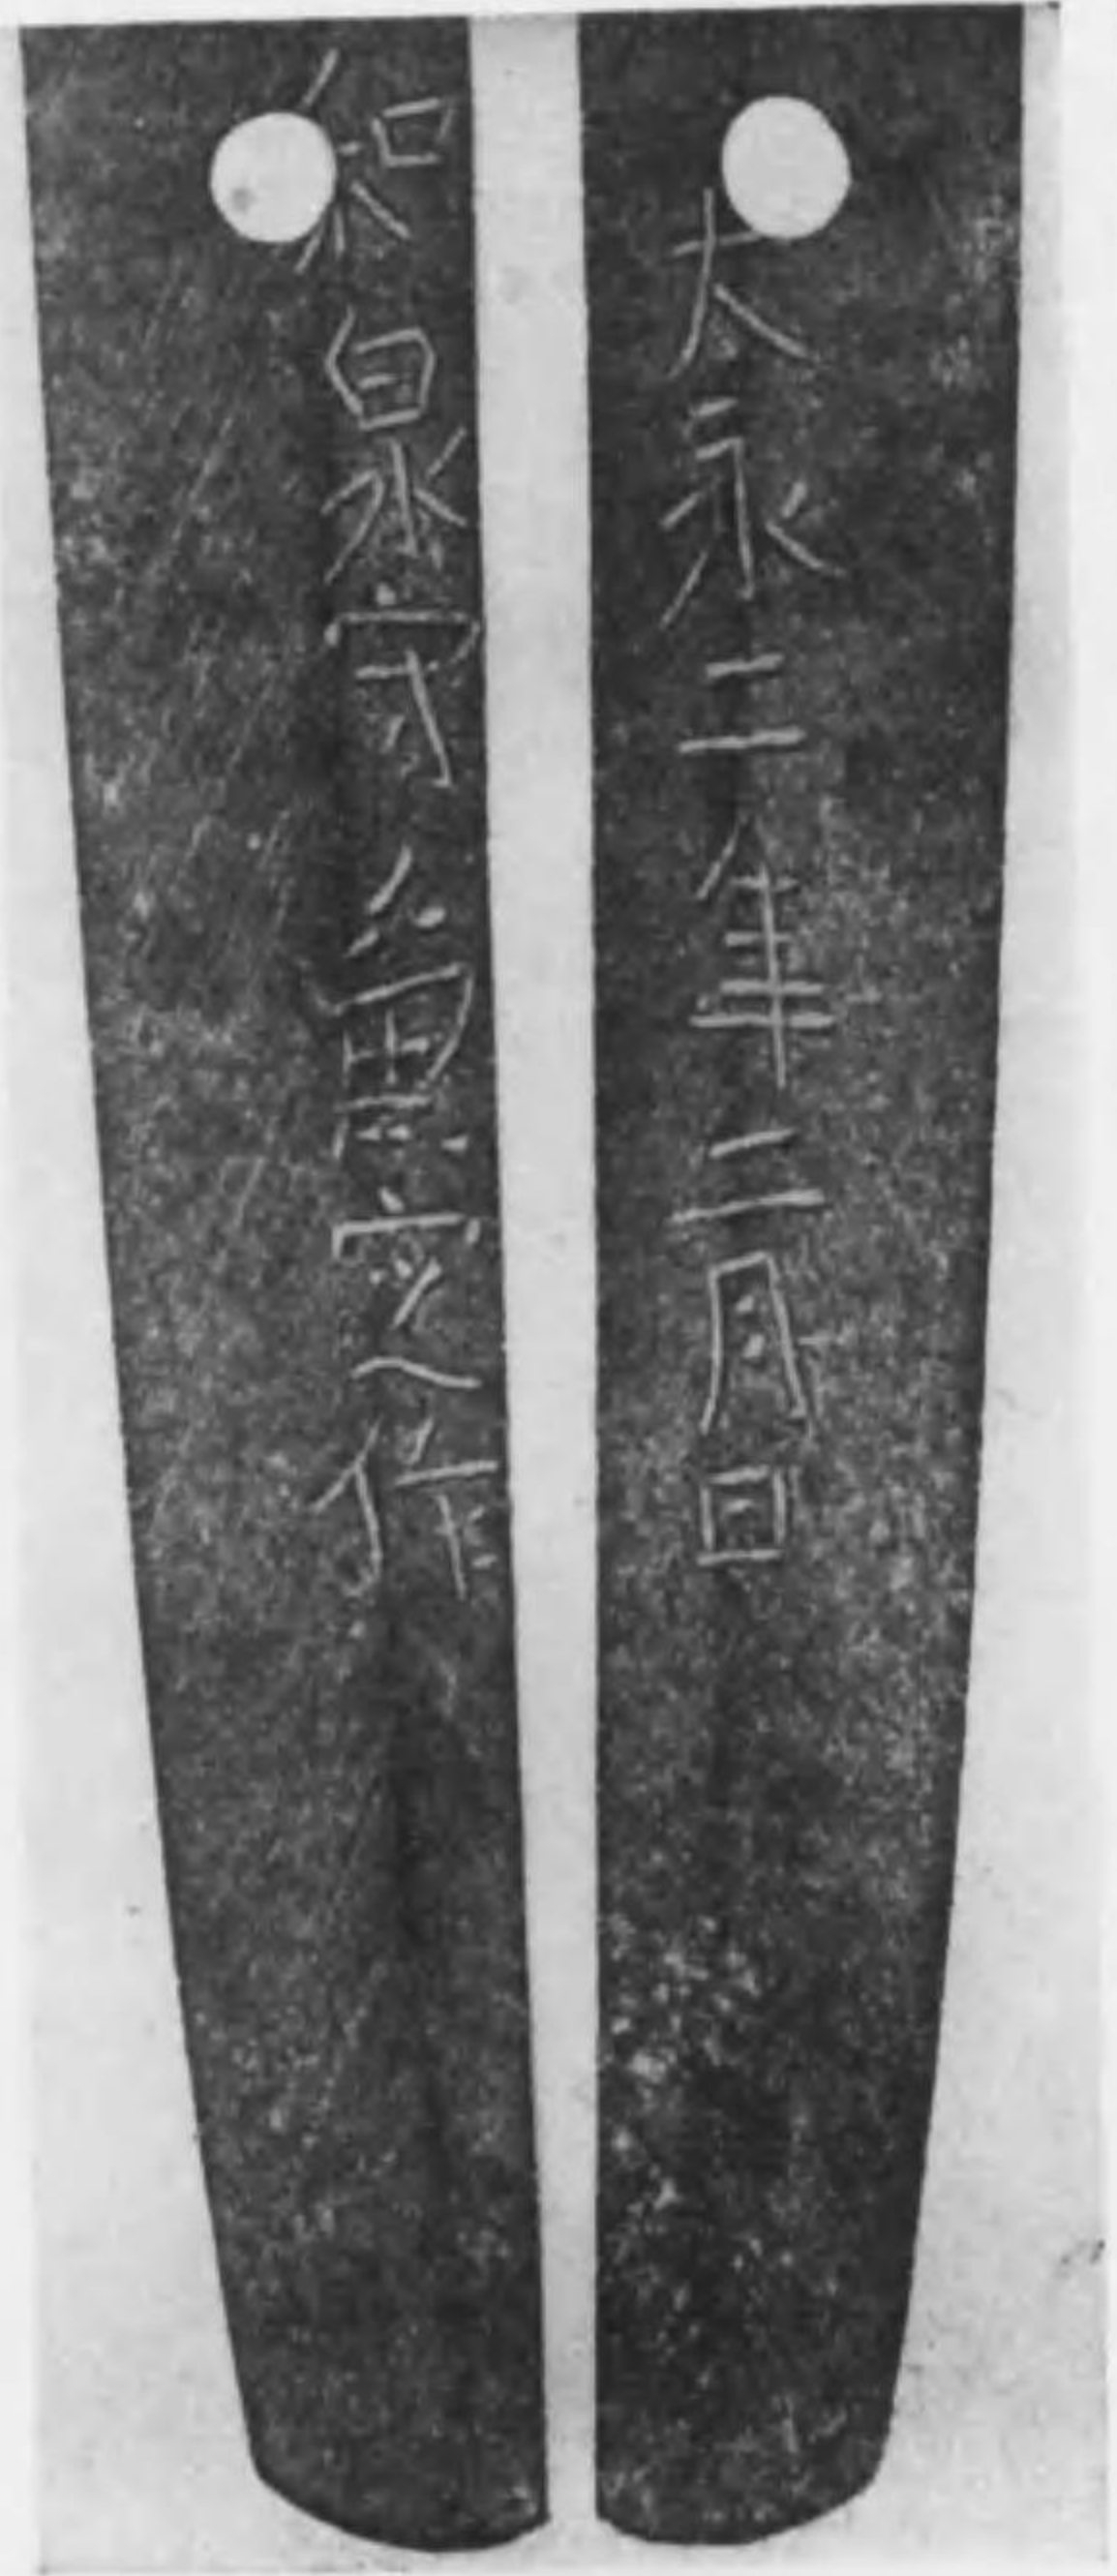 大永二年二月日
和泉守兼定作